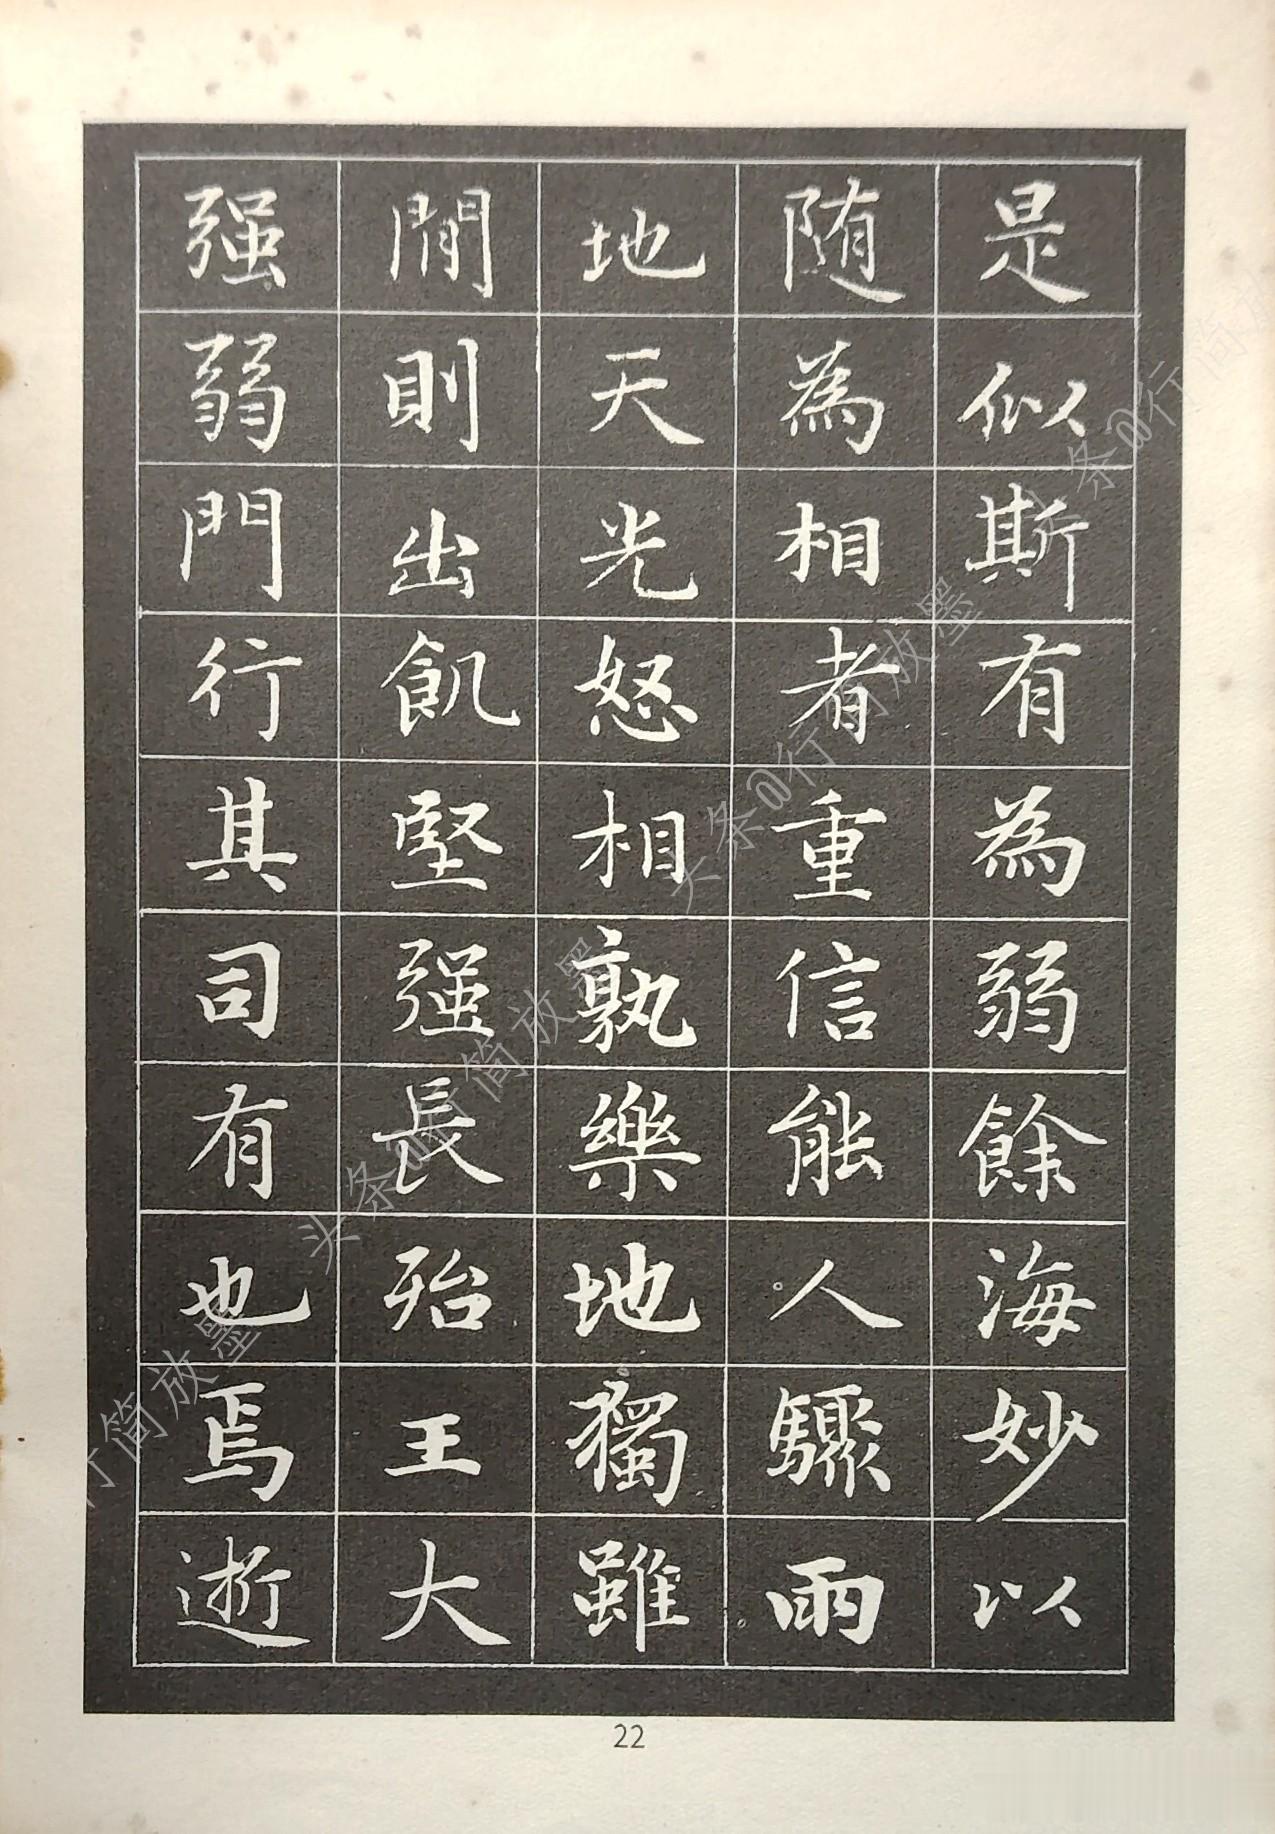 是似斯有為弱餘海妙以
随為相者重信能人驟雨
地天光怒相孰樂地獨雖
間則出飢堅强長殆王大
强弱門行其司有也焉逝
22
头条@行简放墨